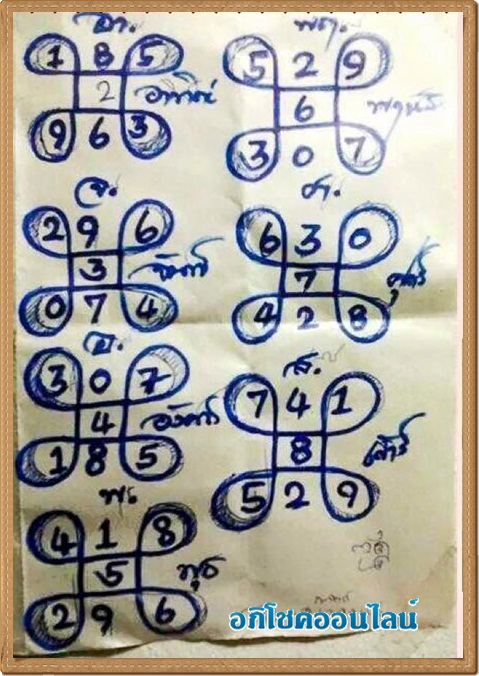 อา.
1 8 5
2 อาทิตย์
9 6 3
จ.
2 9 6
3 จันทร์
0 7 4
อ.
3 0 7
4 อังคาร
1 8 5
พ.
4 1 8
5 พุธ
2 9 6
พฤ.
5 2 9
6 พฤหัส
3 0 7
ศ.
6 3 0
7 ศุกร์
4 2 8
ส.
7 4 1
8 เสาร์
5 2 9
อภิโชคออนไลน์